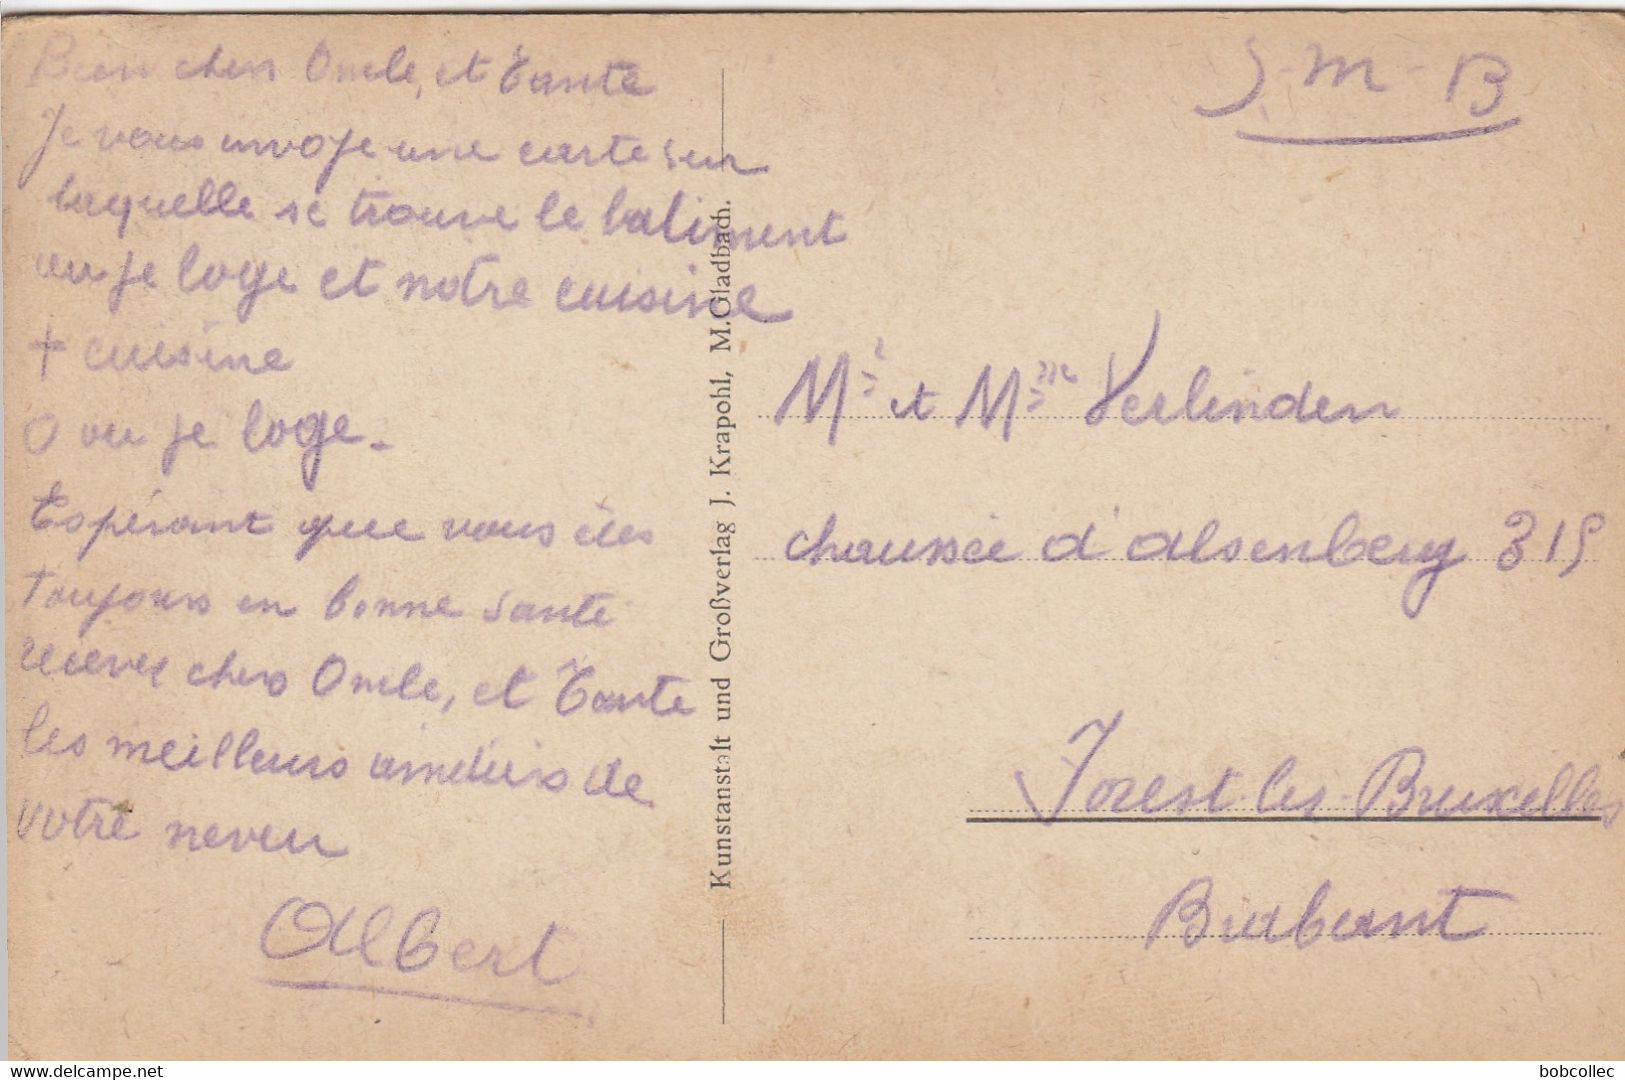 Bien chers Oncle, et Tante
Je vous envoje une carte sur
laquelle se trouve le batiment
ou je loge et notre cuisine
+ cuisine
O ou je loge.
Espérant que vous êtes
toujours en bonne santé
recevez chers Oncle, et Tante
les meilleurs amitiés de
votre neveu
Albert
Kunstanstalt und Großverlag J. Krapohl, M.Gladbach.
S.M-B
Mr et Mme Verlinden
chaussée d'alsenberg 315
Forest-les-Bruxelles
Brabant
delcampe.net
bobcollec